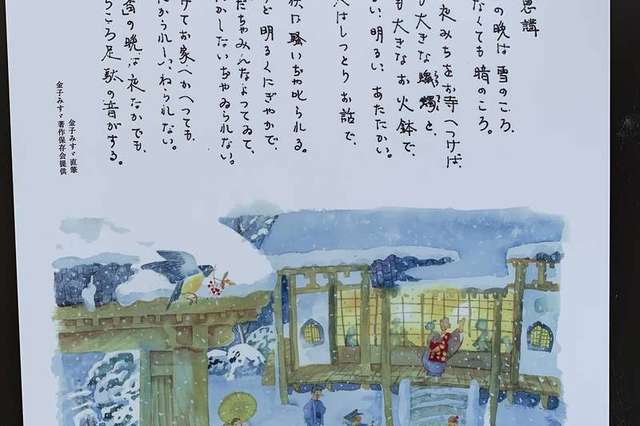 恩講
の晩は雪のころ、
なくても暗のころ。
夜みちをお寺へつけば、
も大きな蠟燭と、
も大きなお火鉢で、
るい、明るい、あたたかい。
人はしっとりお話で、
供は騒いぢや叱られる。
ど、明るくにぎやかで、
だちやみんなよってゐて、
かしないぢやゐられない。
けてお家へかへっても、
れかうれしい、ねられない。
講の晩は夜なかでも、
らころ足駄の音がする。
金子みすゞ直筆
金子みすゞ著作保存会提供